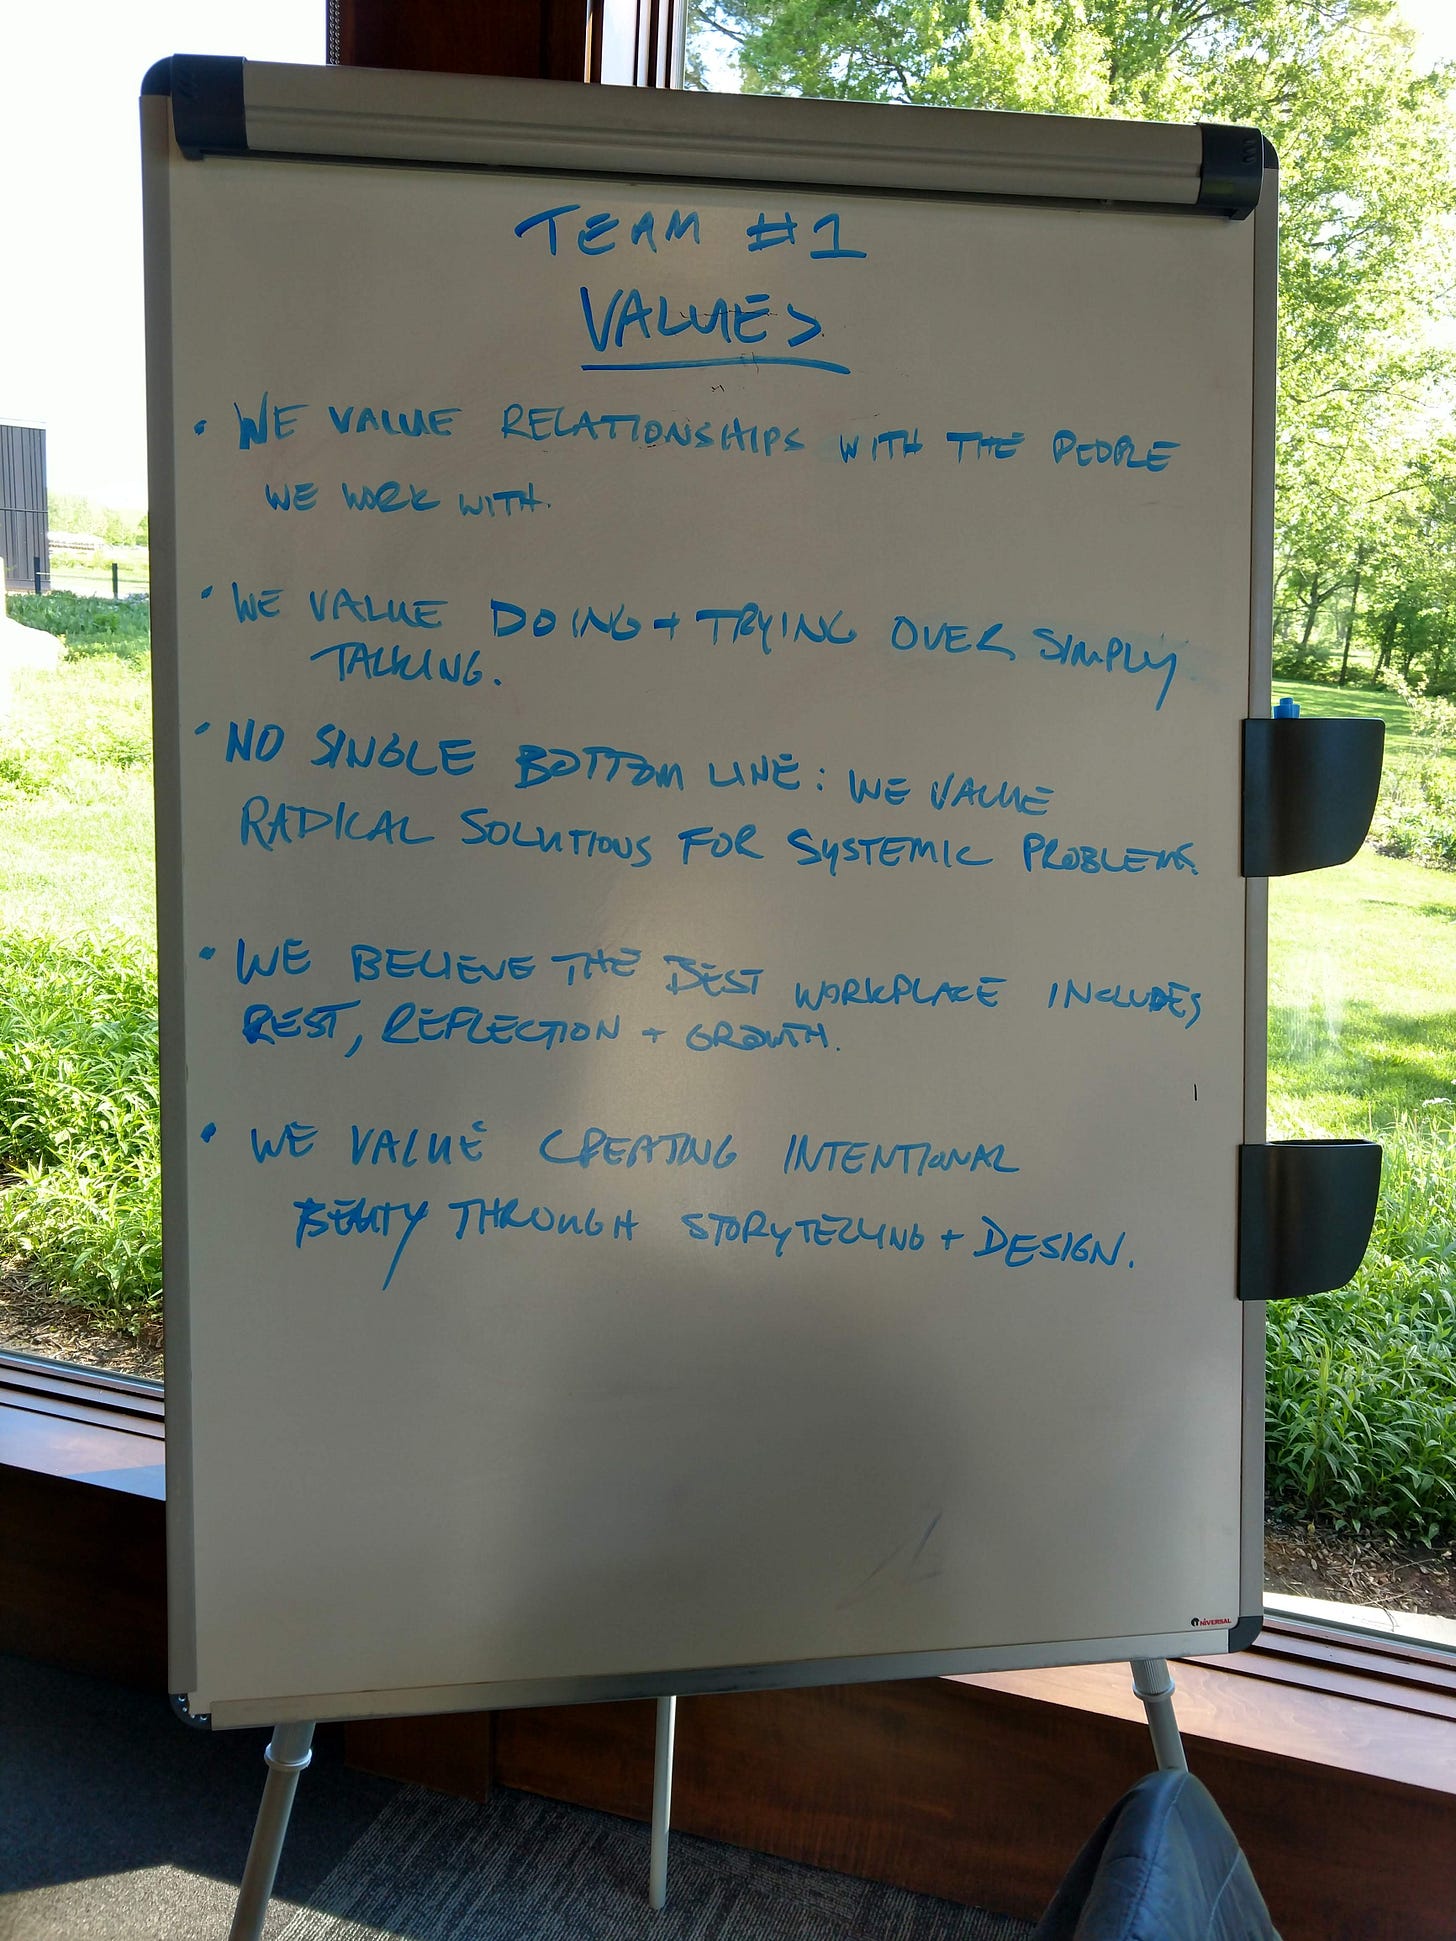 TEAM #1
VALUES
• WE VALUE RELATIONSHIPS WITH THE PEOPLE
WE WORK WITH.
• WE VALUE DOING + TRYING OVER SIMPLY
TALKING.
• NO SINGLE BOTTOM LINE: WE VALUE
RADICAL SOLUTIONS FOR SYSTEMIC PROBLEMS.
• WE BELIEVE THE BEST WORKPLACE INCLUDES
REST, REFLECTION + GROWTH.
• WE VALUE CREATING INTENTIONAL
THROUGH STORYTELLING + DESIGN.
UNIVERSAL